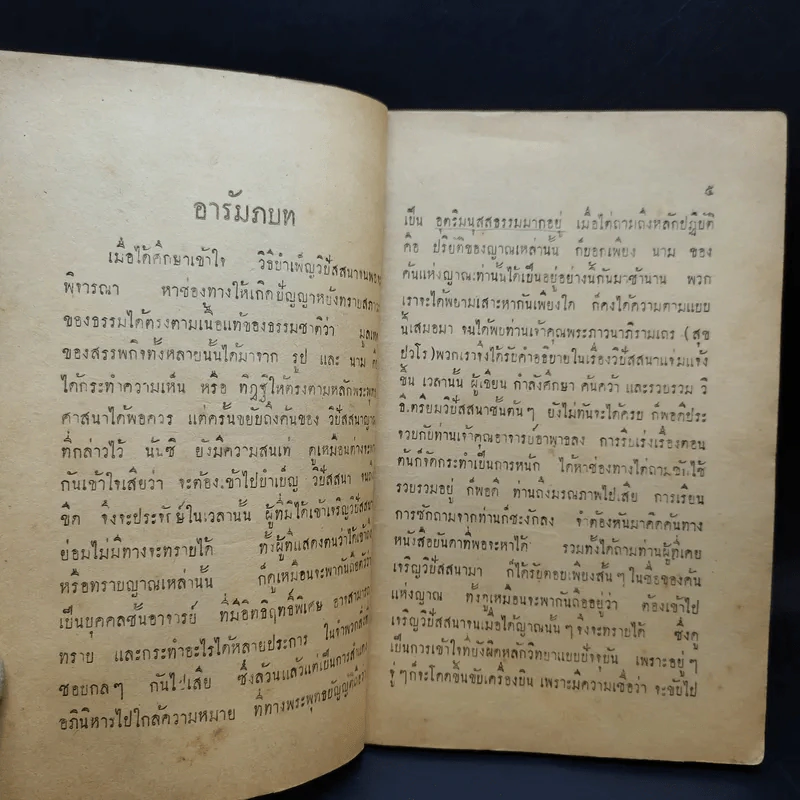 อารัมภบท
เมื่อได้ศึกษาเข้าใจ วิธีบำเพ็ญวิปัสสนาจนพอจะ
พิจารณา หาช่องทางให้เกิดปัญญาหยั่งทราบสภาพ
ของธรรมได้ตรงตามเนื้อแท้ของธรรมชาติว่า มูลเหตุ
ของสรรพกิจทั้งหลายนั้นได้มาจาก รูป และ นาม
ได้กระทำความเห็น หรือ ทิฏฐิให้ตรงตามหลักพระพุทธ
ศาสนาได้พอควร แต่ครั้นขยับถึงคันของ วิปัสสนาญาณ
ที่กล่าวไว้ นั่นซิ ยังมีความสนเท่ ดูเหมือนต่างจะพา
กันเข้าใจเสียว่า จะต้องเข้าไปบำเย็ญ วิปัสสนา จนถึง
ขีด จึงจะประจักษ์ในเวลานั้น ผู้ที่มิได้เข้าเจริญวิปัสสนา
ย่อมไม่มีทางจะทราบได้ ทั้งผู้ที่แสดงตนว่าได้เข้าถึง
หรือทราบญาณเหล่านั้น ก็ดูเหมือนจะพากันถือตัวว่า
เป็นยุคคลชั้นอาจารย์ ที่มีอิทธิฤทธิ์พิเศษ อาจสามารถ
ทราบ และกระทำอะไรได้หลายประการ ในจำพวกสิ่งที่
ชอบกลๆ กันไปเสีย ซึ่งล้วนแล้วแต่เป็นการสำแดง
อภินิหารไปใกล้ความหมาย ที่ทางพระพุทธบัญญัติเรียกว่า
๕
เป็น อุตริมนุสสธรรมมากอยู่ เมื่อได้ถามถึงหลักปฏิบัติ
คือ ปริยัติของญาณเหล่านั้น ก็บอกเพียง นาม ของ
คันแห่งญาณ ท่านได้เป็นอยู่อย่างนี้กันมาช้านาน พวก
เราจะได้พยามเสาะหากันเพียงใด ก็คงได้ความตามแบบ
นี้เสมอมา จนได้พบท่านเจ้าคุณพระภาวนาภิรามเถร (สุข
ปวโร) พวกเราจึงได้รับคำอธิบายในเรื่องวิปัสสนาแจ่มแจ้ง
ขึ้น เวลานั้น ผู้เขียน กำลังศึกษา ค้นคว้า และรวบรวม วิ
ธีเตรียมวิปัสสนาขั้นต้นๆ ยังไม่ทันจะได้ครบ ก็พอดีประ
จวบกับท่านเจ้าคุณอาจารย์อาพาธลง การรีบเร่งเรื่องตอน
ต้นก็จัดกระทำเป็นการหนัก ได้หาช่องทางได้ถามซักไซ้
รวบรวมอยู่ ก็พอดี ท่านถึงมรณภาพไปเสีย การเรียน
การซักถามจากท่านก็ชะงักลง จำต้องหันมาคิดค้นทาง
หนังสือบันดาที่พอจะหาได้ รวมทั้งได้ถามท่านผู้ที่เคย
เจริญวิปัสสนามา ก็ได้รับตอบเพียงสั้นๆในชื่อของคัน
แห่งญาณ ทั้งดูเหมือนจะพากันถืออยู่ว่า ต้องเข้าไป
เจริญวิปัสสนาจนเมื่อได้ญาณนั้นๆจึงจะทราบได้ ซึ่งดู
เป็นการเข้าใจที่ยังผิดหลักวิทยาแบบปัจจุบัน เพราะอยู่ๆ
จู่ๆก็จะโดดขึ้นขับเครื่องบิน เพราะมีความเชื่อว่า จะขับไป